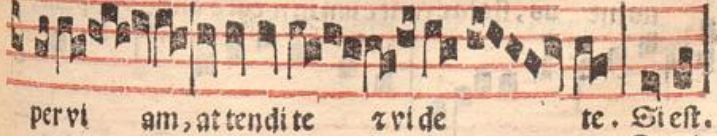 per vi am, at ten di te ⁊ vi de te. Si est.